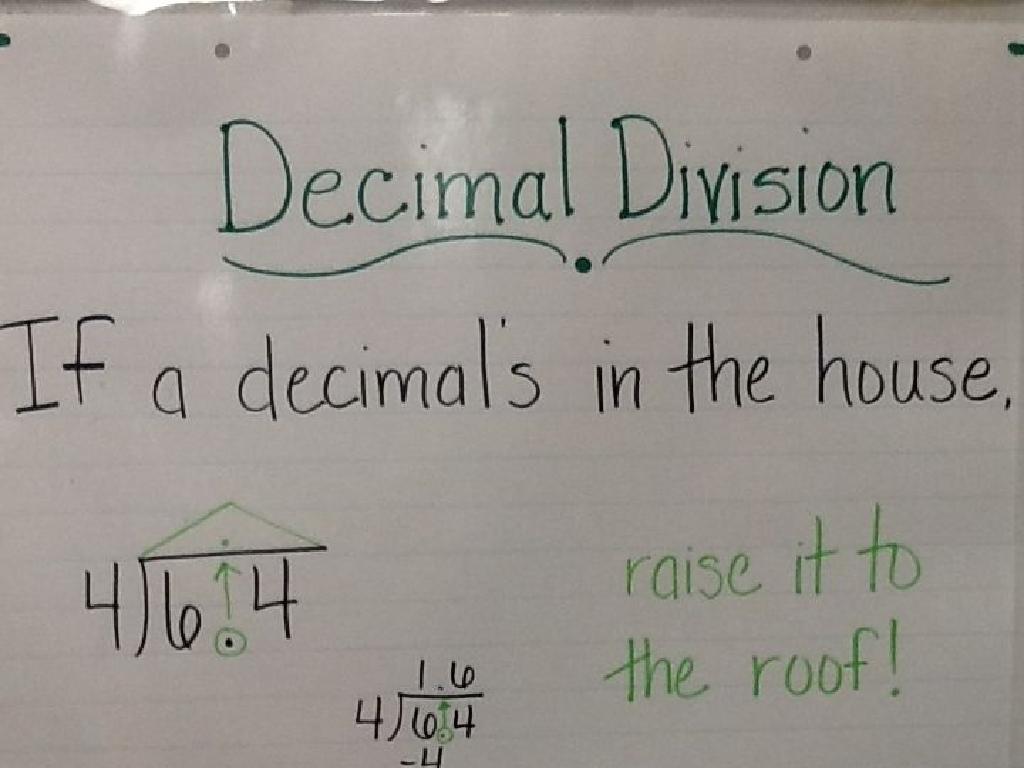 Decimal Division
If a decimal's in the house,
raise it to
the roof!
4)6.4
1.6
4)6.4
-4